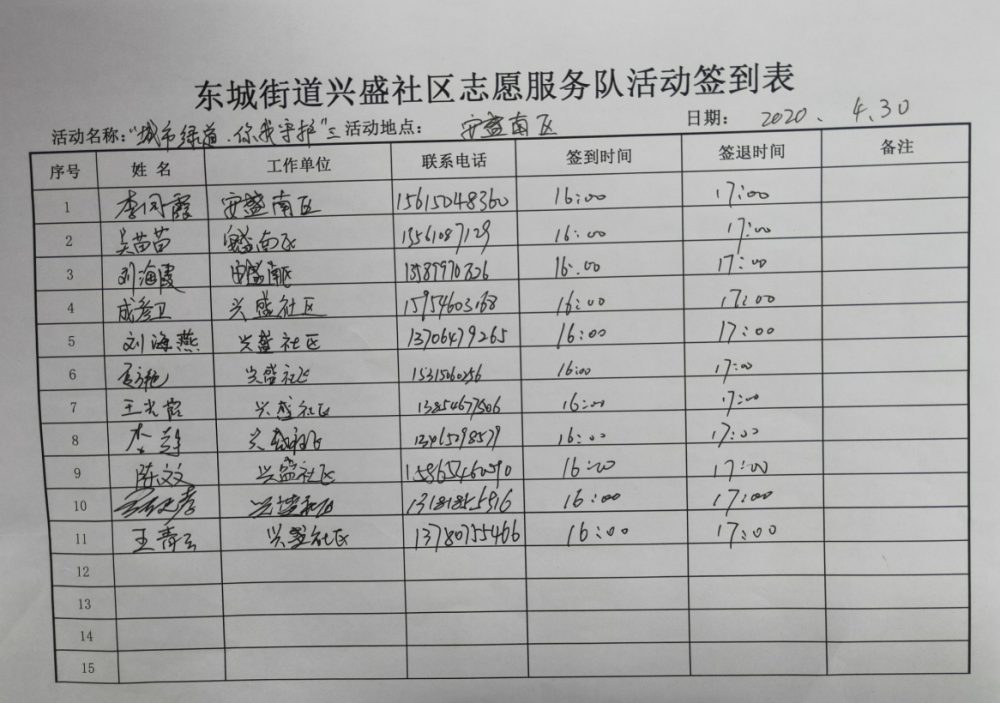 东城街道兴盛社区志愿服务队活动签到表
活动名称：“城市绿道·你我守护” 活动地点： 安盛南区 日期： 2020、4.30
序号 姓名 工作单位 联系电话 签到时间 签退时间 备注
1 李同霞 安盛南区 15615048360 16:00 17:00
2 吴苗苗 安盛南区 16:00 17:00
3 刘海霞 安盛南区 16:00 17:00
4 成彦卫 兴盛社区 15954603168 16:00 17:00
5 刘海燕 兴盛社区 13706479265 16:00 17:00
6 兴盛社区 15315060256 16:00 17:00
7 兴盛社区 13854677506 16:00 17:00
8 兴盛社区 16:00 17:00
9 陈文文 兴盛社区 16:00 17:00
10 兴盛社区 16:00 17:00
11 王青云 兴盛社区 13780755466 16:00 17:00
12
13
14
15